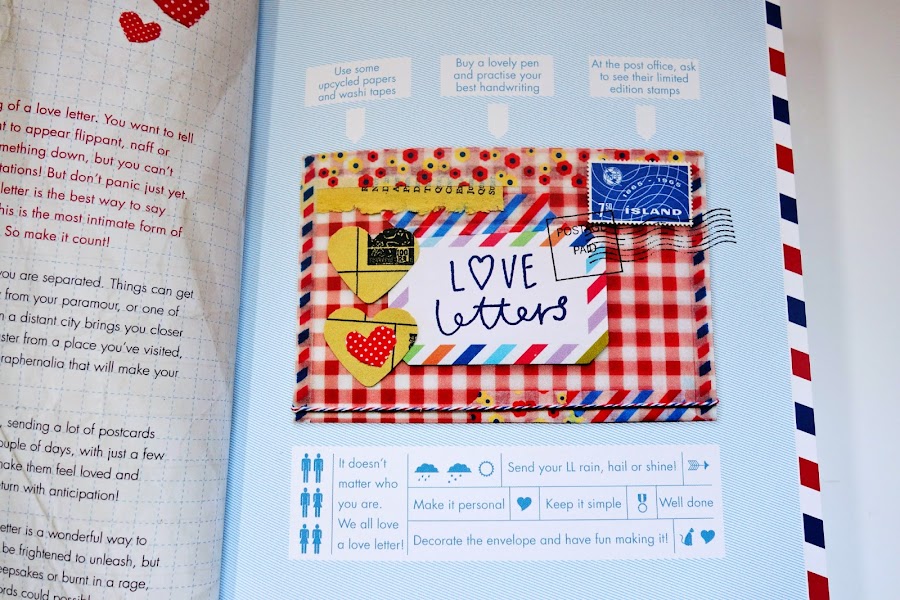 g of a love letter. You want to tell
t to appear flippant, naff or
mething down, but you can't
tations! But don't panic just yet.
letter is the best way to say
his is the most intimate form of
. So make it count!
you are separated. Things can get
from your paramour, or one of
n a distant city brings you closer
ster from a place you've visited,
raphernalia that will make your
, sending a lot of postcards
ouple of days, with just a few
make them feel loved and
eturn with anticipation!
etter is a wonderful way to
be frightened to unleash, but
eepsakes or burnt in a rage,
Use some
upcycled papers
and washi tapes
Buy a lovely pen
and practise your
best handwriting
At the post office, ask
to see their limited
edition stamps
1865-1965
7.50
ISLAND
POSTAGE
PAID
LOVE
letters
It doesn't
matter who
you are.
We all love
a love letter!
Send your LL rain, hail or shine!
Make it personal
Keep it simple
Well done
Decorate the envelope and have fun making it!